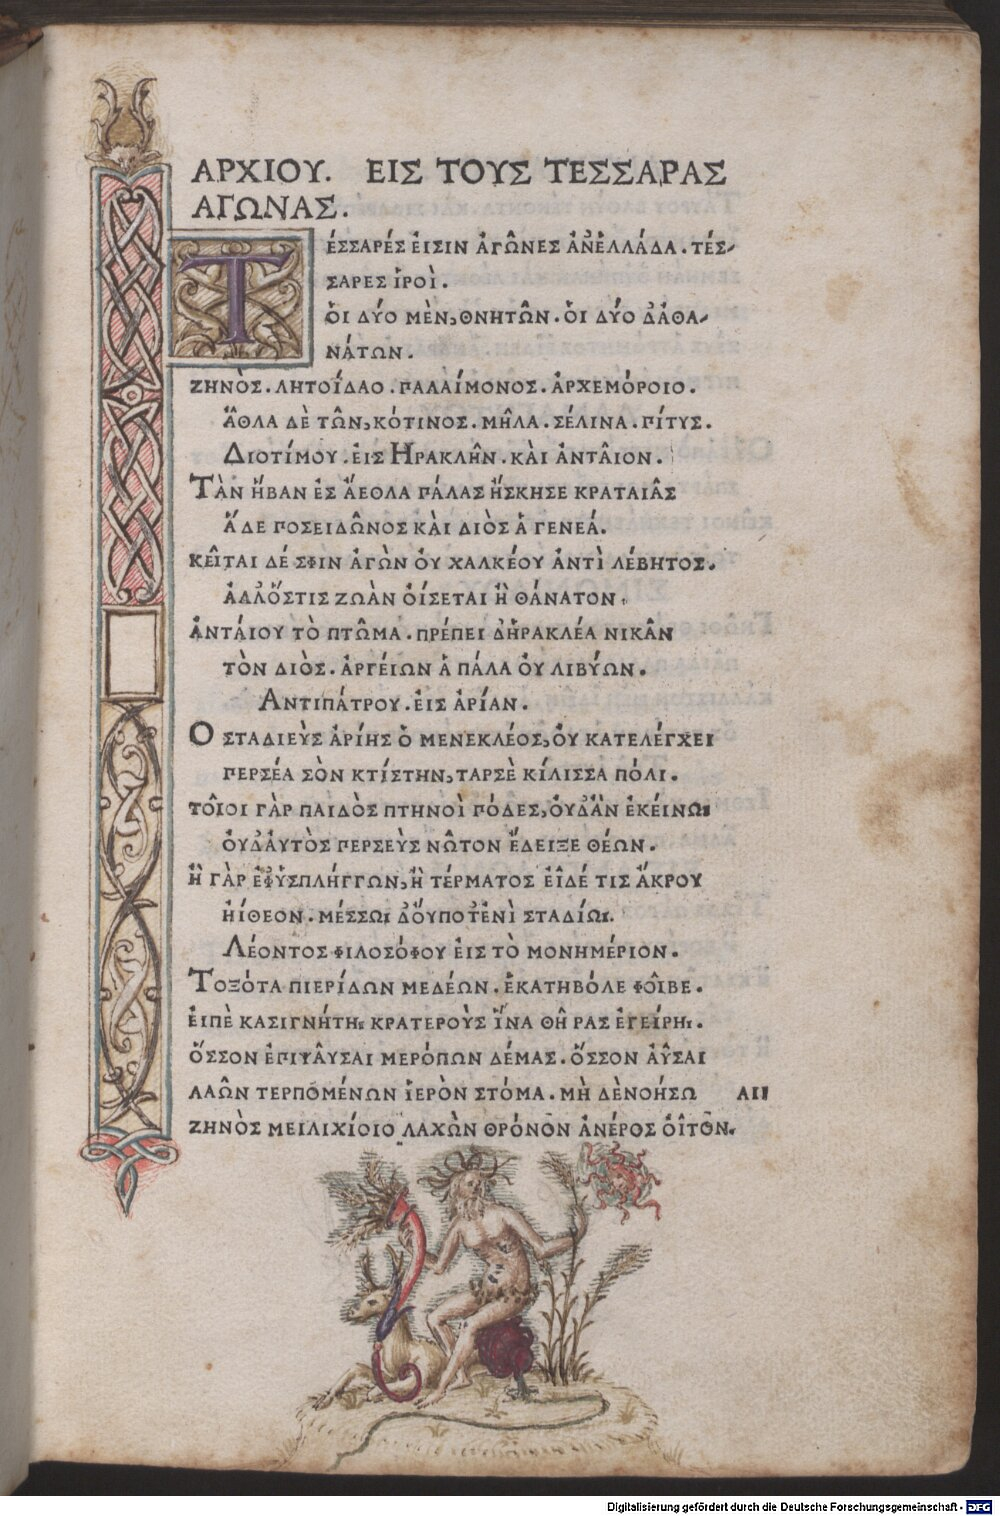 ΑΡΧΙΟΥ. ΕΙΣ ΤΟΥΣ ΤΕΣΣΑΡΑΣ
ΑΓΩΝΑΣ.
ΤΈΣΣΑΡΕΣ ἘΙΣΙΝ ἈΓΩ͂ΝΕΣ ἈΝ᾽ἙΛΛΆΔΑ. ΤΈΣ-
ΣΑΡΕΣ ἹΡΟῚ.
ὉΙ ΔΎΟ ΜῈΝ, ΘΝΗΤΩ͂Ν. ὉΙ ΔΎΟ Δ᾽ἈΘΑ-
ΝΆΤΩΝ.
ΖΗΝῸΣ. ΛΗΤΟΪ́ΔΑΟ. ΠΑΛΑΊΜΟΝΟΣ. ἈΡΧΕΜΌΡΟΙΟ.
ἎΘΛΑ ΔῈ ΤΩ͂Ν, ΚΌΤΙΝΟΣ. ΜΗ͂ΛΑ. ΣΈΛΙΝΑ. ΠΊΤΥΣ.
ΔΙΟΤΊΜΟΥ. ἘΙΣ ἩΡΑΚΛΗ͂Ν. ΚΑῚ ἈΝΤΑΙ͂ΟΝ.
ΤᾺΝ ἭΒΑΝ ἘΣ ἌΕΘΛΑ ΠΆΛΑΣ ἬΣΚΗΣΕ ΚΡΑΤΑΙΑ͂Σ
ἍΔΕ ΠΟΣΕΙΔΩ͂ΝΟΣ ΚΑῚ ΔΙῸΣ Ἁ ΓΕΝΕΆ.
ΚΕΙ͂ΤΑΙ ΔΈ ΣΦΙΝ ἈΓῺΝ ὈΥ ΧΑΛΚΈΟΥ ἈΝΤῚ ΛΈΒΗΤΟΣ.
ἈΛΛ᾽ὍΣΤΙΣ ΖΩᾺΝ ὈΊΣΕΤΑΙ Ἢ ΘΆΝΑΤΟΝ.
ἈΝΤΆΙΟΥ ΤῸ ΠΤΩ͂ΜΑ. ΠΡΈΠΕΙ Δ᾽ἩΡΑΚΛΈΑ ΝΙΚΑ͂Ν
ΤῸΝ ΔΙῸΣ. ἈΡΓΈΙΩΝ Ἁ ΠΆΛΑ ὈΥ ΛΙΒΎΩΝ.
ΑΝΤΙΠΆΤΡΟΥ. ἘΙΣ ἈΡΊΑΝ.
Ο ΣΤΑΔΙΕῪΣ ἈΡΊΗΣ Ὁ ΜΕΝΕΚΛΈΟΣ, ὈΥ ΚΑΤΕΛΈΓΧΕΙ
ΠΕΡΣΈΑ ΣῸΝ ΚΤΊΣΤΗΝ, ΤΑΡΣῈ ΚΊΛΙΣΣΑ ΠΌΛΙ.
ΤΟΙ͂ΟΙ ΓᾺΡ ΠΑΙΔῸΣ ΠΤΗΝΟῚ ΠΌΔΕΣ, ὈΥΔ᾽ἊΝ ἘΚΕΊΝΩΙ
ὈΥΔ᾽ἈΥΤῸΣ ΠΕΡΣΕῪΣ ΝΩ͂ΤΟΝ ἜΔΕΙΞΕ ΘΈΩΝ.
Ἢ ΓᾺΡ ἘΦ᾽ὙΣΠΛΉΓΓΩΝ, Ἢ ΤΈΡΜΑΤΟΣ ἘΙ͂ΔΈ ΤΙΣ ἌΚΡΟΥ
ἨΪ́ΘΕΟΝ. ΜΈΣΣΩΙ Δ᾽ὌΥΠΟΤ᾽ἘΝῚ ΣΤΑΔΊΩΙ.
ΛΈΟΝΤΟΣ ΦΙΛΟΣΌΦΟΥ ἘΙΣ ΤῸ ΜΟΝΗΜΈΡΙΟΝ.
ΤΟΞΌΤΑ ΠΙΕΡΊΔΩΝ ΜΕΔΈΩΝ. ἙΚΑΤΗΒΌΛΕ ΦΟΙ͂ΒΕ.
ἘΙΠῈ ΚΑΣΙΓΝΉΤΗΙ ΚΡΑΤΕΡΟῪΣ ἽΝΑ ΘΗ͂ΡΑΣ ἘΓΕΊΡΗΙ.
ὍΣΣΟΝ ἘΠΙΨΑΥ͂ΣΑΙ ΜΕΡΌΠΩΝ ΔΈΜΑΣ. ὍΣΣΟΝ ἈΫΣΑΙ
ΛΑΩ͂Ν ΤΕΡΠΟΜΈΝΩΝ ἹΕΡῸΝ ΣΤΌΜΑ. ΜῊ ΔῈ ΝΟΉΣΩ ΑΙΙ
ΖΗΝῸΣ ΜΕΙΛΙΧΊΟΙΟ ΛΑΧῺΝ ΘΡΌΝΟΝ ἈΝΈΡΟΣ ὈΙ͂ΤΟΝ.
Digitalisierung gefördert durch die Deutsche Forschungsgemeinschaft - DFG